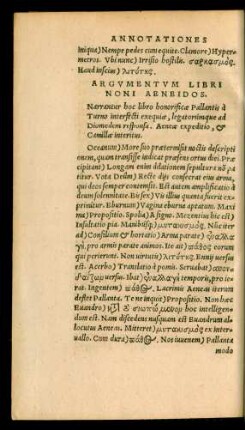 ANNOTATIONES
inique) Nempe pedes cunt equite. Clamore) Hyper-
metros. Vbi nunc) Irrisio hostilis. σαρκασμός.
Haud inscius) λιτότης.
ARGVMENTVM LIBRI
NONI AENEIDOS.
Narrantur hoc libro honorifica Pallantis à
Turno interfecti exequiæ, legatorumque ad
Diomedem responsa. Aeneæ expeditio, &
Camillæ interitus.
Oceanum) More suo prætermissa noctis descripti
enim, quam transisse indicat præsens ortus diei. Præ
cipitant) Longam enim dilationem sepultura nō pa
titur. Vota Deûm) Recte dijs consecrat eius arma,
qui deos semper contempsit. Est autem amplificatio à
deum solennitate. Bis sex) Vir illius quenta fuerit ex-
primitur. Eburnum) Vagina eburna aptatum. Maxi
ma) Propositio. Spolia) A signo. Mezentius hic est)
Insultatio pia. Manibusq.) μυτακισμὸς. Ne ite iter
ad) Consilium & hortatio) Arma parate)
pro armis parate animos. Ire ait) πάθος eorum
qui pereunt. Non uirtutis) λιτότης. Enni uersus
est. Acerbo) Translatio à pomis. Seruabat)
uersu. Ibat) temporis, pro iue
rat. Ingentem) πάθος. Lacrimis Aeneæ iterum
deflet Pallanta. Te ne inque) Propositio. Non hæc
Euandro) ἦθος ἐν σιωπώμενον hoc intelligen-
dum est. Nam discedens nusquam est Euandrum al-
locutus Aeneas. Mitteret) μυτακισμὸς ex inter-
uallo. Cum dura) πάθος. Nos iuuenem) Pallanta
modo